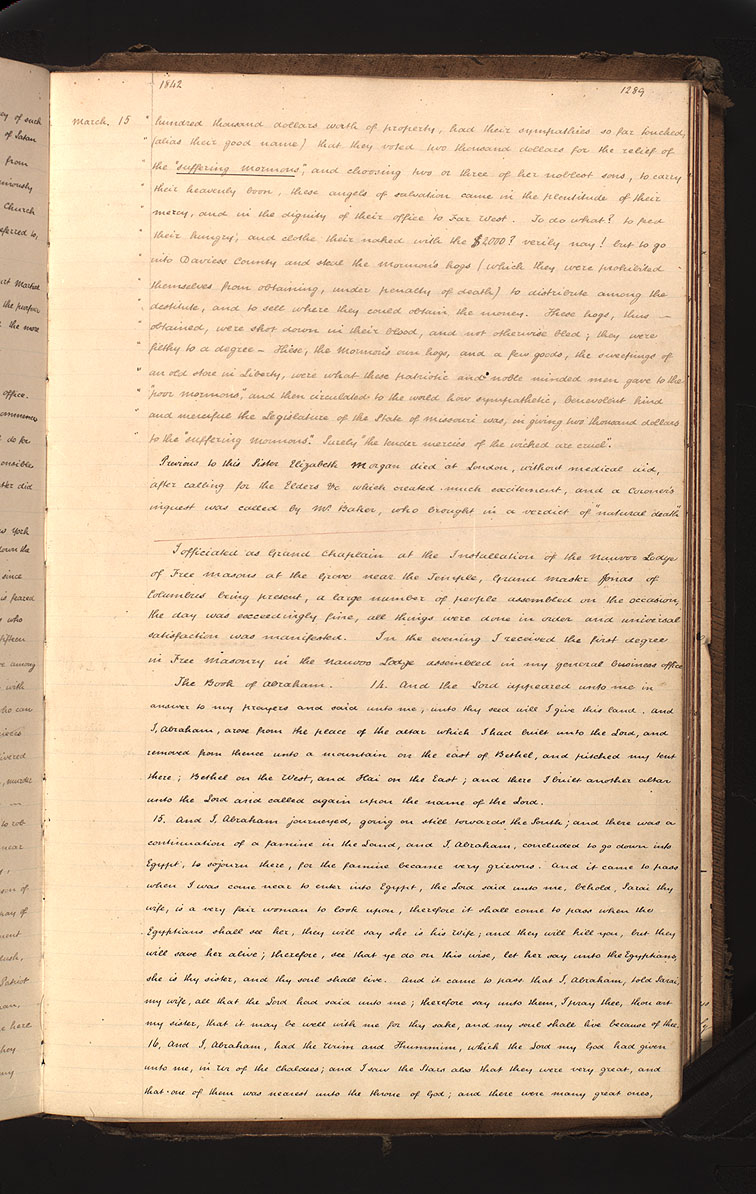 1842
1289
March. 15 " hundred thousand dollars worth of property, had their sympathies so far touched,
" (alias their good name) that they voted two thousand dollars for the relief of
" the "suffering mormons", and choosing two or three of her noblest sons, to carry
" their heavenly boon, these angels of salvation came in the plentitude of their
" mercy, and in the dignity of their office to Far West. To do what? to feed
" their hungry, and clothe their naked with the $2000? verily nay! but to go
" into Daviess County and steal the Mormon's hogs (which they were prohibited
" themselves from obtaining, under penalty of death) to distribute among the
" destitute, and to sell where they could obtain the money. These hogs, thus
" obtained, were shot down in their blood, and not otherwise bled; they were
" filthy to a degree – These, the Mormon's own hogs, and a few goods, the sweepings of
" an old store in Liberty, were what these patriotic and noble minded men gave to the
" "poor mormons", and then circulated to the world how sympathetic, benevolent kind
" and merciful the Legislature of the State of Missouri was, in giving two thousand dollars
" to the "suffering Mormons". Surely "the tender mercies of the wicked are cruel".
Previous to this Sister Elizabeth Morgan died at London, without medical aid,
after calling for the Elders &c which created much excitement, and a Coroner's
inquest was called by Mr Baker, who brought in a verdict of "natural death".
I officiated as Grand Chaplain at the Installation of the Nauvoo Lodge
of Free Masons at the Grove near the Temple, Grand Master Jonas of
Columbus being present, a large number of people assembled on the occasion,
the day was exceedingly fine, all things were done in order and universal
satisfaction was manifested. In the evening I received the first degree
in Free Masonry in the Nauvoo Lodge assembled in my general business office
The Book of Abraham. 14. And the Lord appeared unto me in
answer to my prayers and said unto me, unto thy seed will I give this land. And
I, Abraham, arose from the place of the altar which I had built unto the Lord, and
removed from thence unto a mountain on the east of Bethel, and pitched my tent
there; Bethel on the West, and Hai on the East; and there I built another altar
unto the Lord and called again upon the name of the Lord.
15. And I, Abraham journeyed, going on still towards the South; and there was a
continuation of a famine in the Land, and I, Abraham, concluded to go down into
Egypt, to sojourn there, for the famine became very grievous. And it came to pass
when I was come near to enter into Egypt, the Lord said unto me, behold, Sarai thy
wife, is a very fair woman to look upon, therefore it shall come to pass when the
Egyptians shall see her, they will say she is his Wife; and they will kill you, but they
will save her alive; therefore, see that ye do on this wise, let her say unto the Egyptians,
she is thy sister, and thy soul shall live. And it came to pass that I, Abraham, told Sarai,
my wife, all that the Lord had said unto me; therefore say unto them, I pray thee, thou art
my sister, that it may be well with me for thy sake, and my soul shall live because of thee.
16. And I, Abraham, had the Urim and Thummim, which the Lord my God had given
unto me, in Ur of the Chaldees; and I saw the Stars also that they were very great, and
that one of them was nearest unto the throne of God; and there were many great ones,